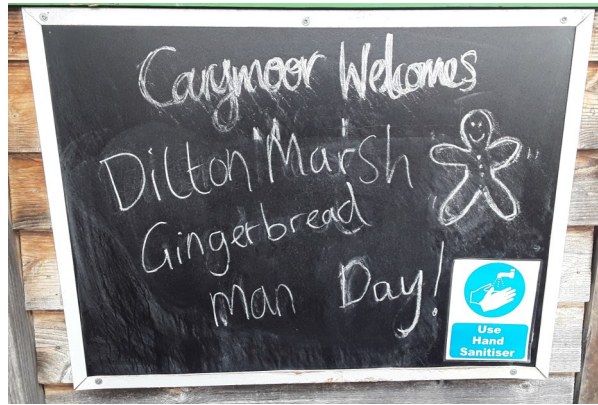 Carymoor Welcomes
Dilton Marsh
Gingerbread
Man Day!
Use
Hand
Sanitiser